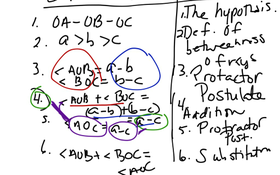 1. OA-OB-OC
2. a > b > c
3. <AOB = a-b
<BOC = b-c
4. <AOB + <BOC =
(a-b)+(b-c)
= a-c
5. <AOC = a-c
6. <AOB + <BOC =
<AOC
1. The hypothesis.
2. Def. of
betweenness
of rays
3. Protactor
Postulate
4. Addition
5. Protractor
Post.
6. Substitution